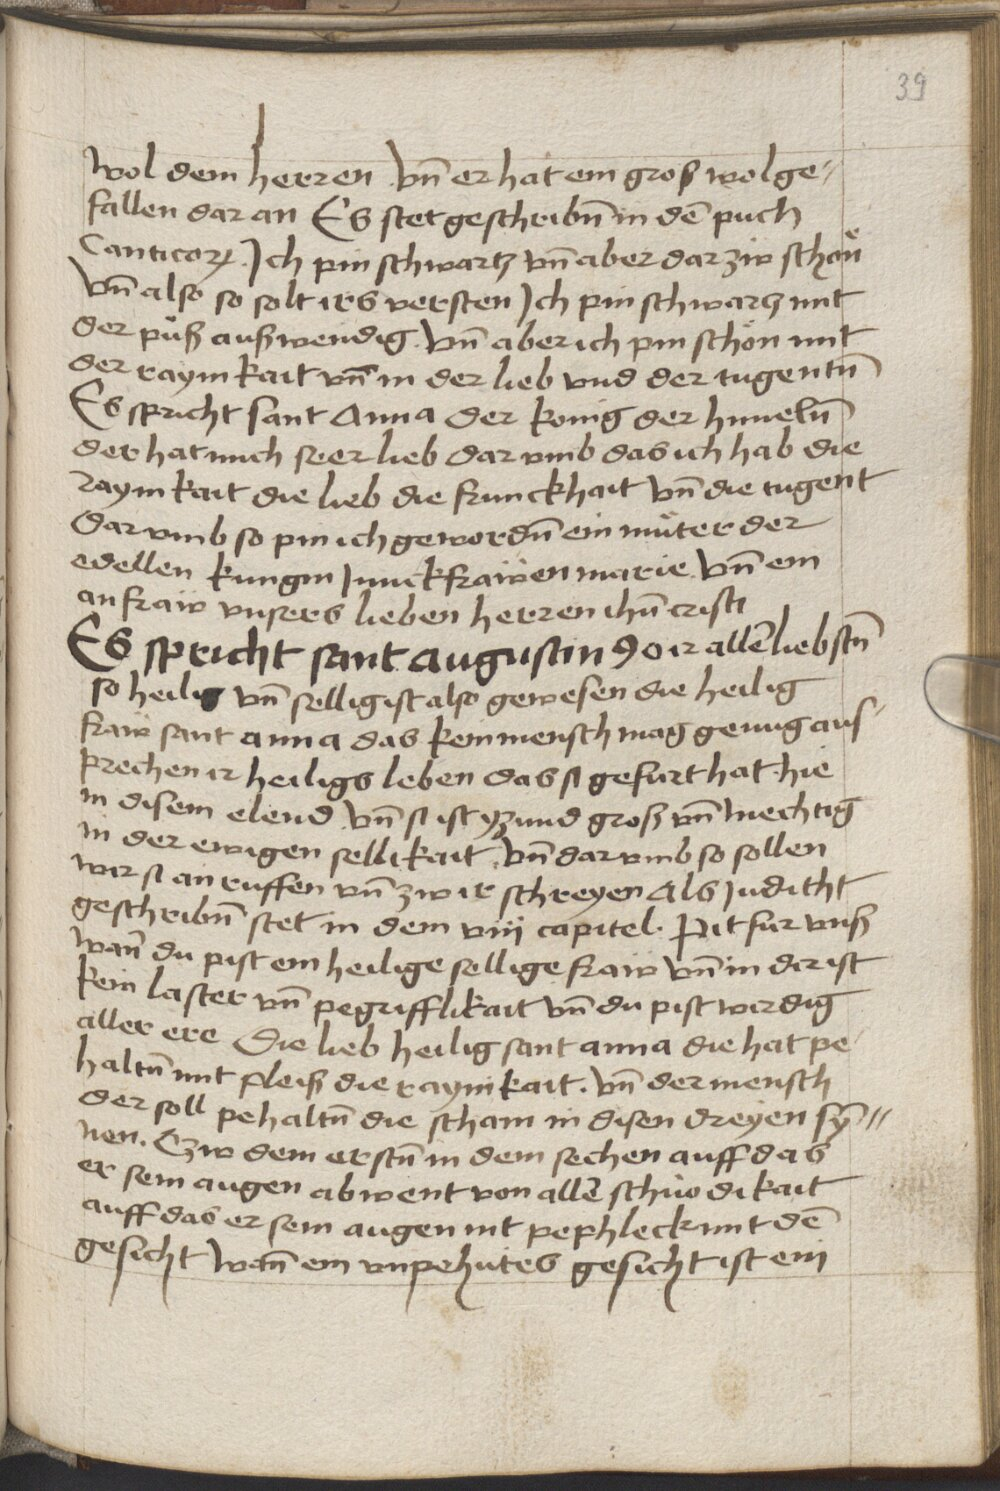 39
wol dem herren Vn̄ er hat ein groß wolge-
fallen dar an Es stet geschribn̄ in dē puch
Canticoꝝ. Ich pin schwartz vn̄ aber dar zw schön
Vn̄ also so solt irs versten Ich pin schwartz mit
der puͤß außwendig. Vn̄ aber ich pin schön mit
der raynikait vn̄ in der lieb vnd der tugentn̄
Es spricht sant Anna der konig der himeln̄
der hat mich seer lieb dar vmb das ich hab die
raynikait die lieb die kunckhait vn̄ die tugent
Dar vmb so pin ich gewordn̄ ein muͤter der
edellen kungin Junckfrawen marie. Vn̄ ein
anfraw vnsers lieben herren ihū cristi
Es spricht sant augustin O ir allē liebstn̄
so heilig vn̄ sellig ist also gewesen die heilig
fraw sant anna das kein mensch mag genug aus-
sprechen ir heiligs leben das si gefurt hat hie
in disem elend Vn̄ si ist yzund groß vn̄ mechtig
in der ewigen sellikait. Vn̄ dar vmb so sollen
wir si an ruffen vn̄ zw ir schreyen Als Juditht
geschribn̄ stet in dem viij capitel. Pit fur vnß
wan̄ du pist ein heilige sellige fraw vn̄ in dir ist
kein laster vn̄ pegrifflikait vn̄ du pist wirdig
aller ere Die lieb heilig sant anna die hat pe-
haltn̄ mit fleiß die raynikait. Vn̄ der mensch
der soll pehaltn̄ die scham in disen dreyen syn̄-
nen. Czw dem erstn̄ in dem sechen auff das
er sein augen abwent von allē schnodikait
auff das er sein augen nit pephleck mit dē
gesicht Wan̄ ein vnpehutes gesicht ist ein